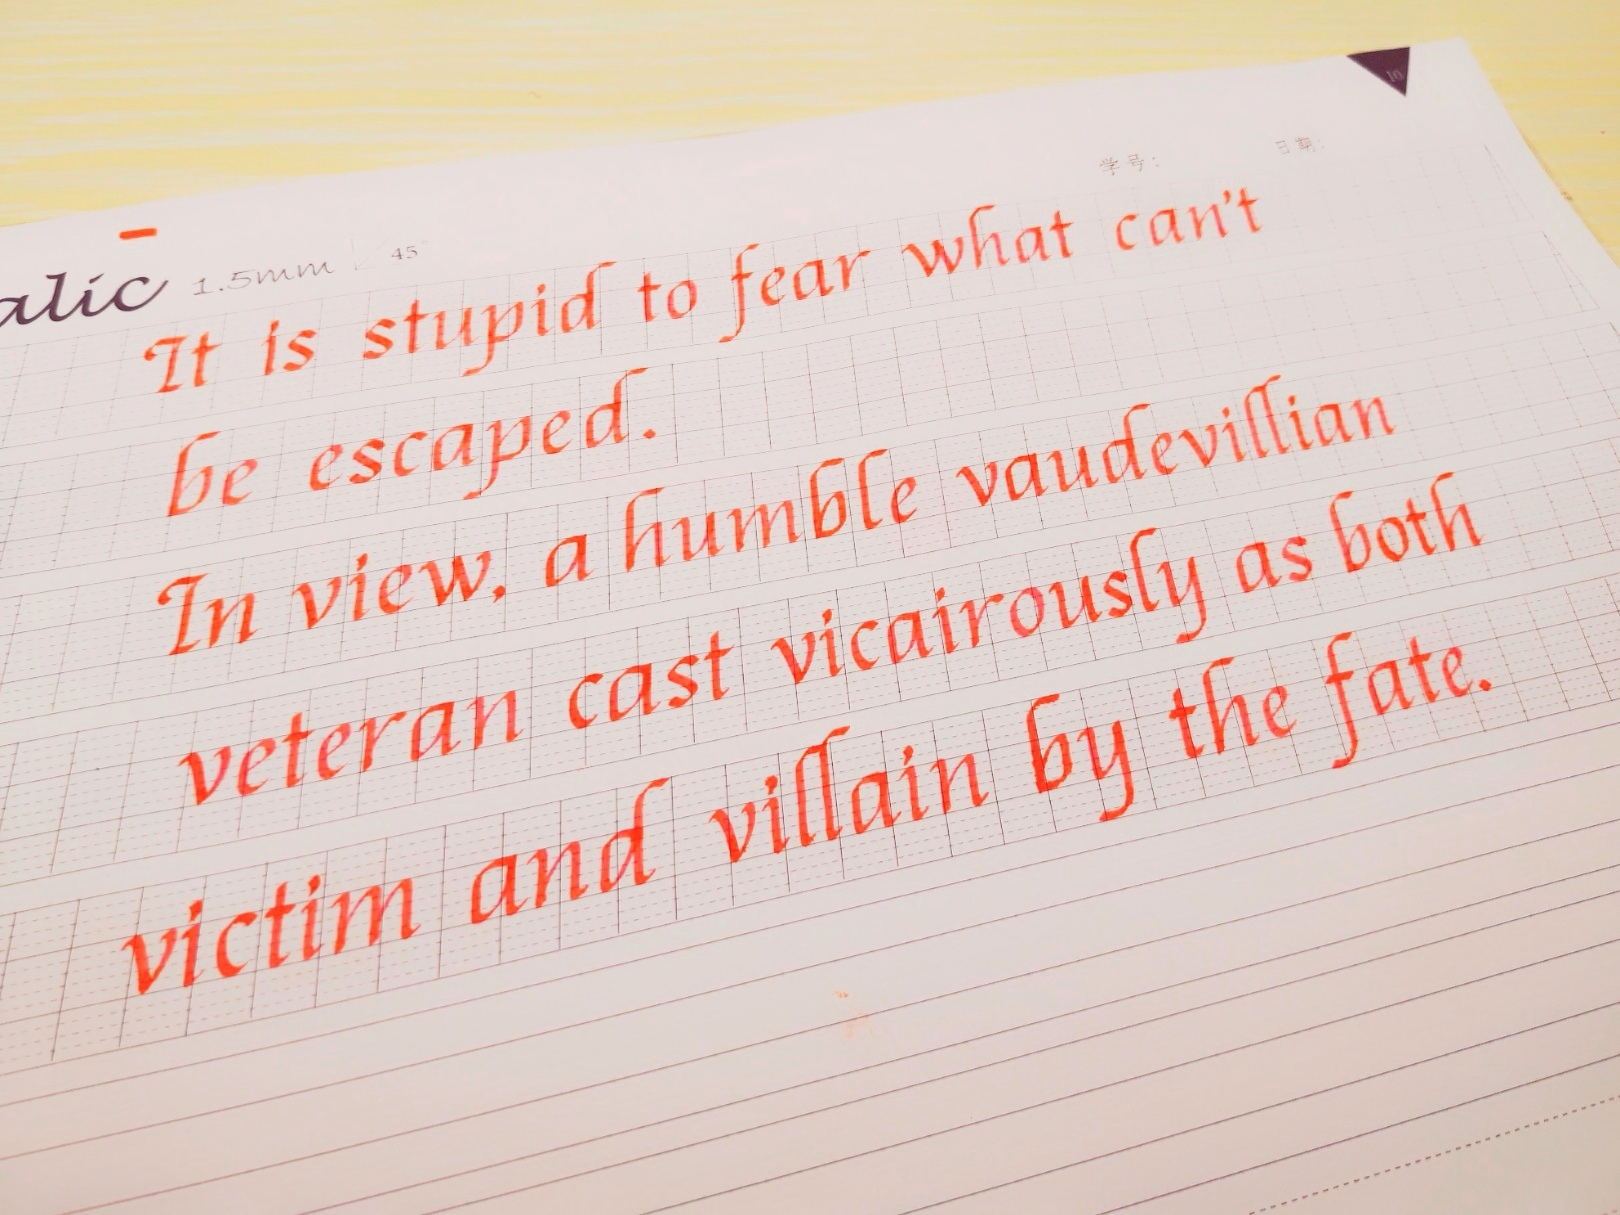 学号: 日期:
alic 1.5mm 45°
It is stupid to fear what can't
be escaped.
In view, a humble vaudevillian
veteran cast vicairously as both
victim and villain by the fate.